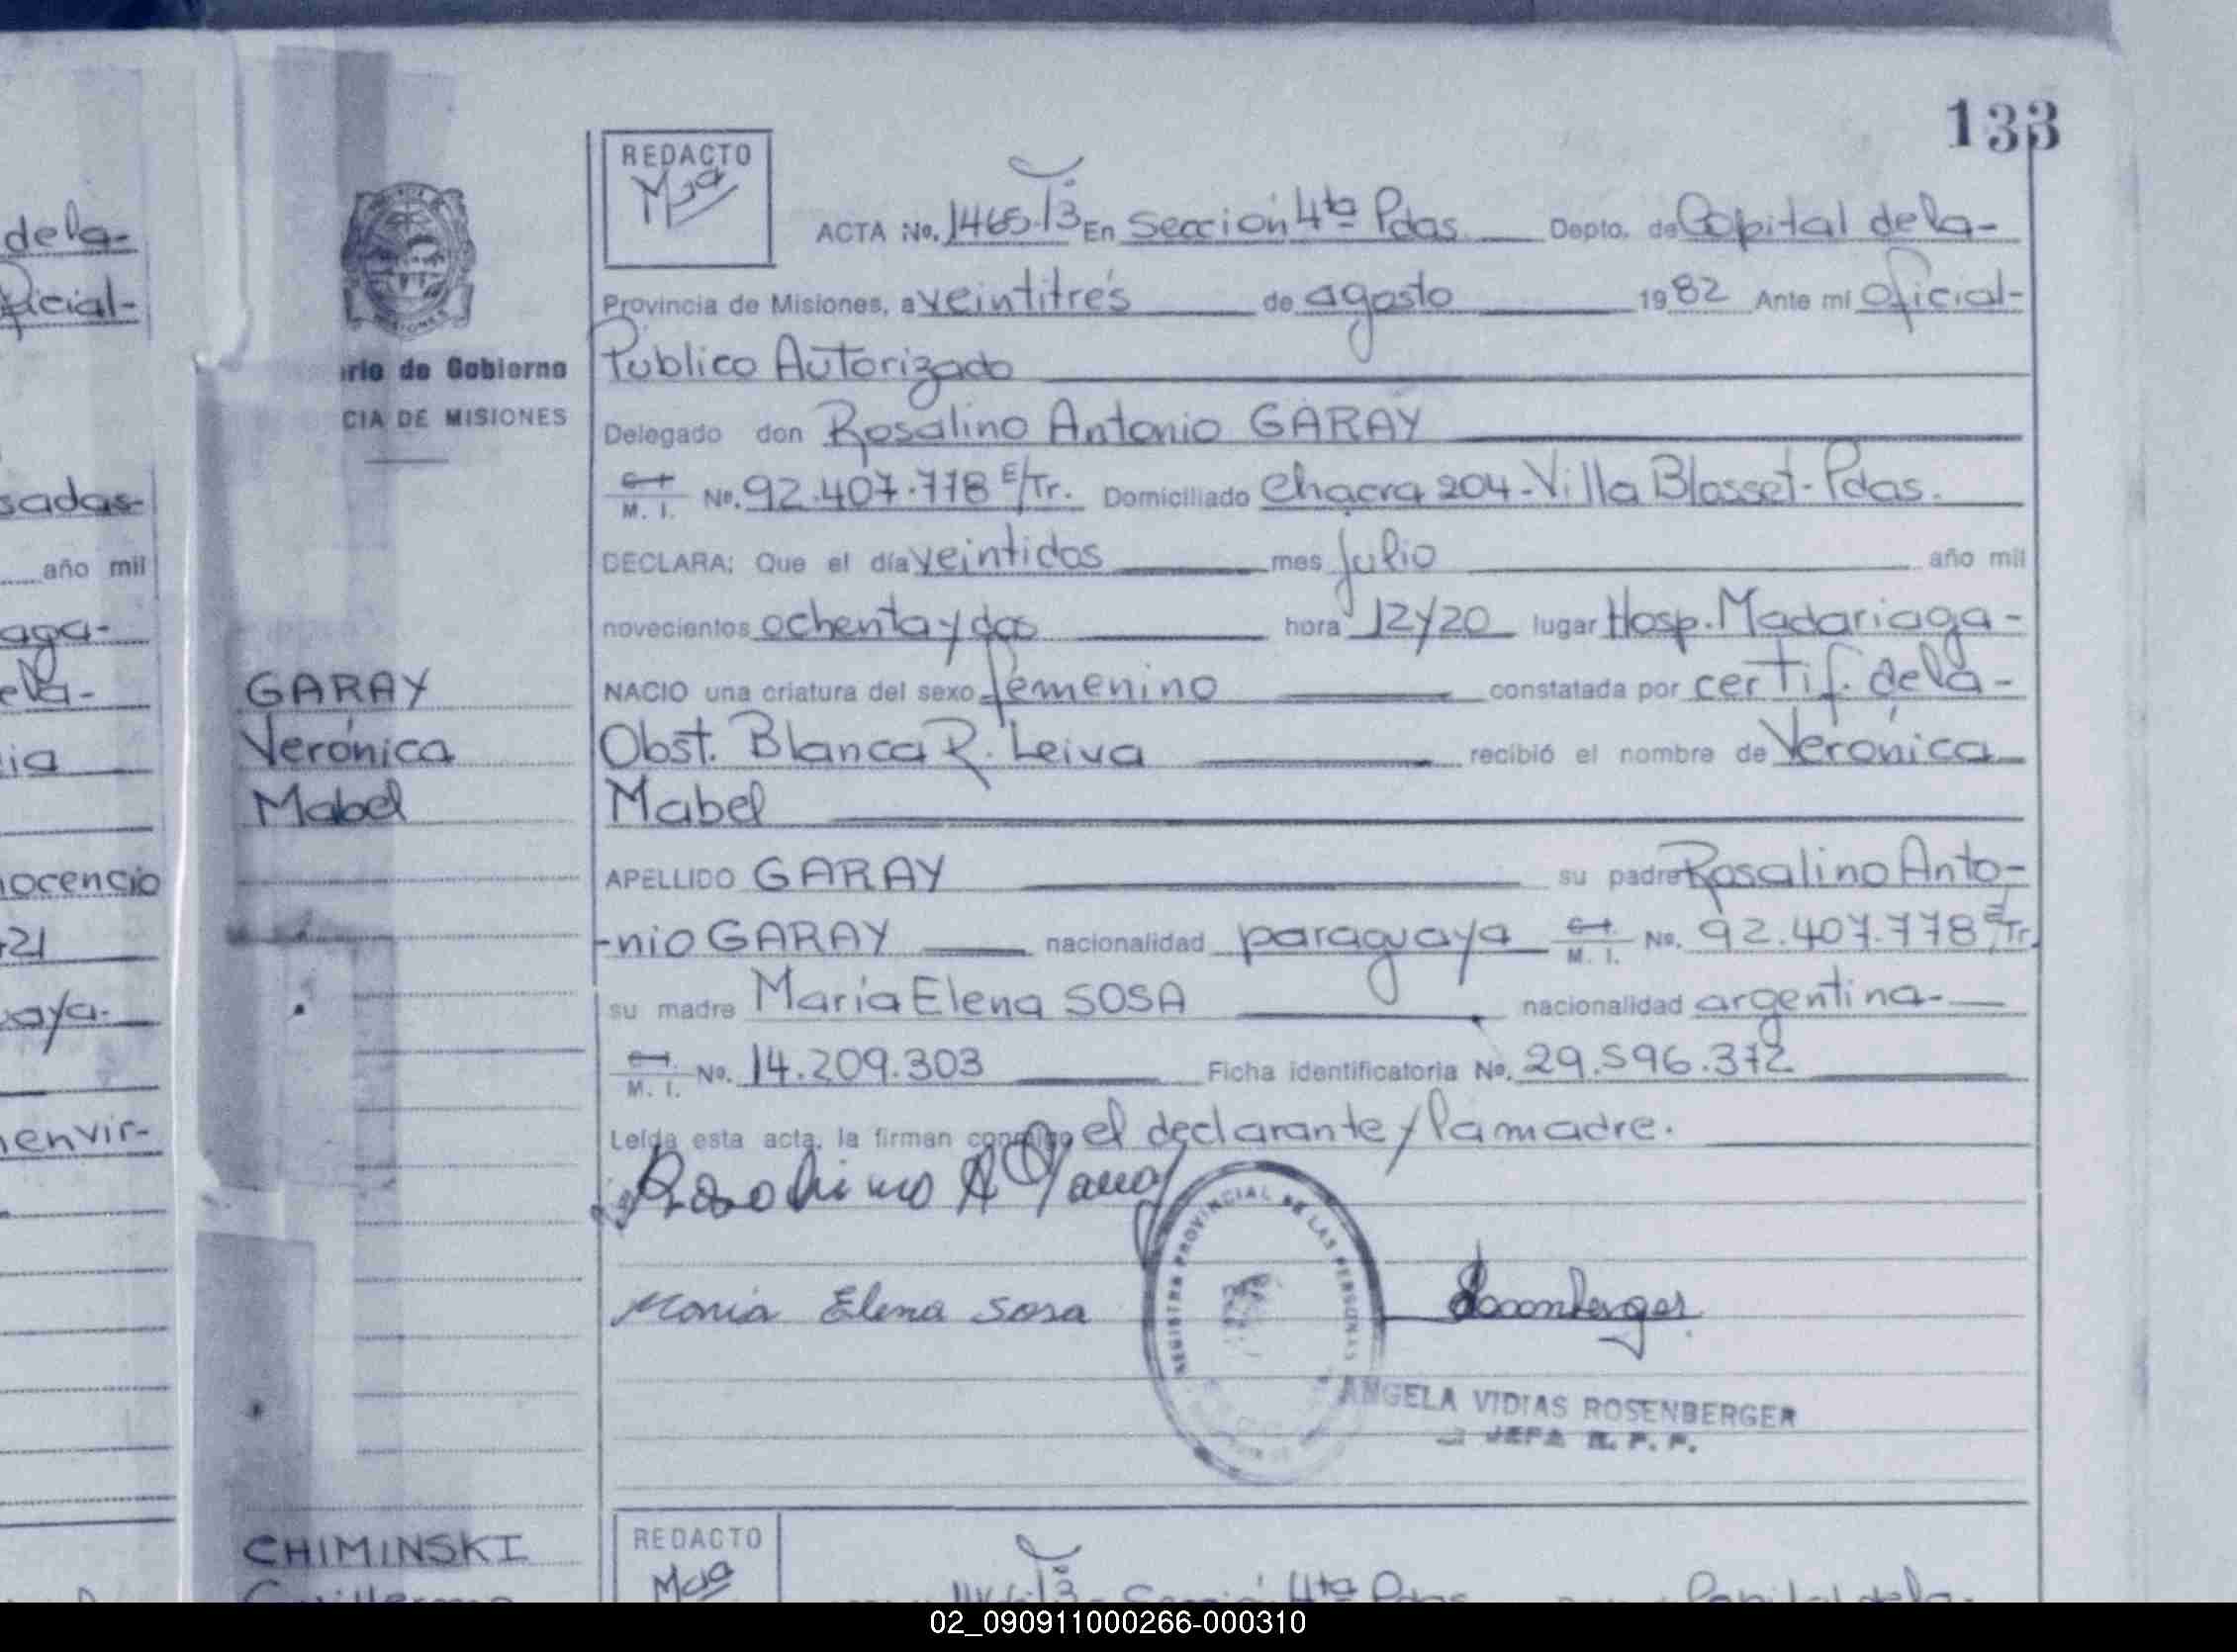 133
REDACTO
ACTA No. 1465-T3 En Sección 4ta Pdas. Depto. de Capital de la-
Provincia de Misiones, a veintitrés de agosto 1982 Ante mí Oficial-
Público Autorizado
Delegado don Rosalino Antonio GARAY
M. I. No. 92.407.778 E/Tr. Domiciliado Chacra 204-Villa Blosset-Pdas.
DECLARA: Que el día veintidos mes Julio año mil
novecientos ochenta y dos hora 12y20 lugar Hosp. Madariaga-
NACIO una criatura del sexo femenino constatada por certif. de la-
Obst. Blanca R. Leiva recibió el nombre de Verónica
Mabel
APELLIDO GARAY su padre Rosalino Anto-
-nio GARAY nacionalidad paraguaya M. I. No. 92.407.778 E/Tr.
su madre María Elena SOSA nacionalidad argentina-
M. I. No. 14.209.303 Ficha identificatoria No. 29.596.372
Leída esta acta, la firman conmigo el declarante y la madre.
Maria Elena Sosa
REGISTRO PROVINCIAL DE LAS PERSONAS
ANGELA VIDIAS ROSENBERGER
JEFA R. P. P.
REDACTO
Sección 4ta Pdas. Capital de la-
rio de Gobierno
CIA DE MISIONES
GARAY
Verónica
Mabel
CHIMINSKI
Guillermo
de la-
ficial-
sadas-
año mil
aga-
ela-
ia
nocencio
421
aya-
envir-
02_090911000266-000310